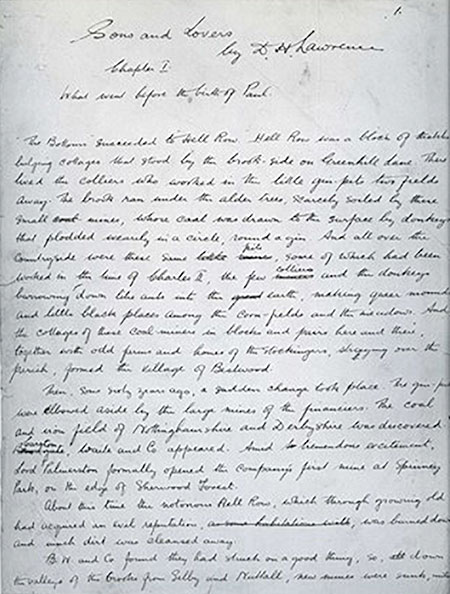 1.
Sons and Lovers
by D. H. Lawrence
Chapter I
What went before the birth of Paul.
"The Bottoms" succeeded to Hell Row. Hell Row was a block of thatched
bulging cottages that stood by the brook-side on Greenhill Lane. There
lived the colliers who worked in the little gin-pits two fields
away. The brook ran under the alder trees, scarcely soiled by these
small coal mines, whose coal was drawn to the surface by donkeys
that plodded wearily in a circle, round a gin. And all over the
pits
countryside were these same mines, some of which had been
colliers
worked in the time of Charles II, the few miners and the donkeys
burrowing down like ants into the earth, making queer mounds
and little black places among the corn-fields and the meadows. And
the cottages of these coal miners in blocks and pairs here and there,
together with odd farms and homes of the stockingers, straying over the
parish, formed the village of Bestwood.
Then, some sixty years ago, a sudden change took place. The gin-pits
were elbowed aside by the large mines of the financiers. The coal
and iron field of Nottinghamshire and Derbyshire was discovered.
Waite and Co appeared. Amid tremendous excitement,
Lord Palmerston formally opened the company's first mine at Spinney
Park, on the edge of Sherwood Forest.
About this time the notorious Hell Row, which through growing old
had acquired an evil reputation, was burned down
and much dirt was cleansed away.
B. W. and Co found they had struck on a good thing, so, down
the valleys of the brooks from Selby and Nuttall, new mines were sunk, until